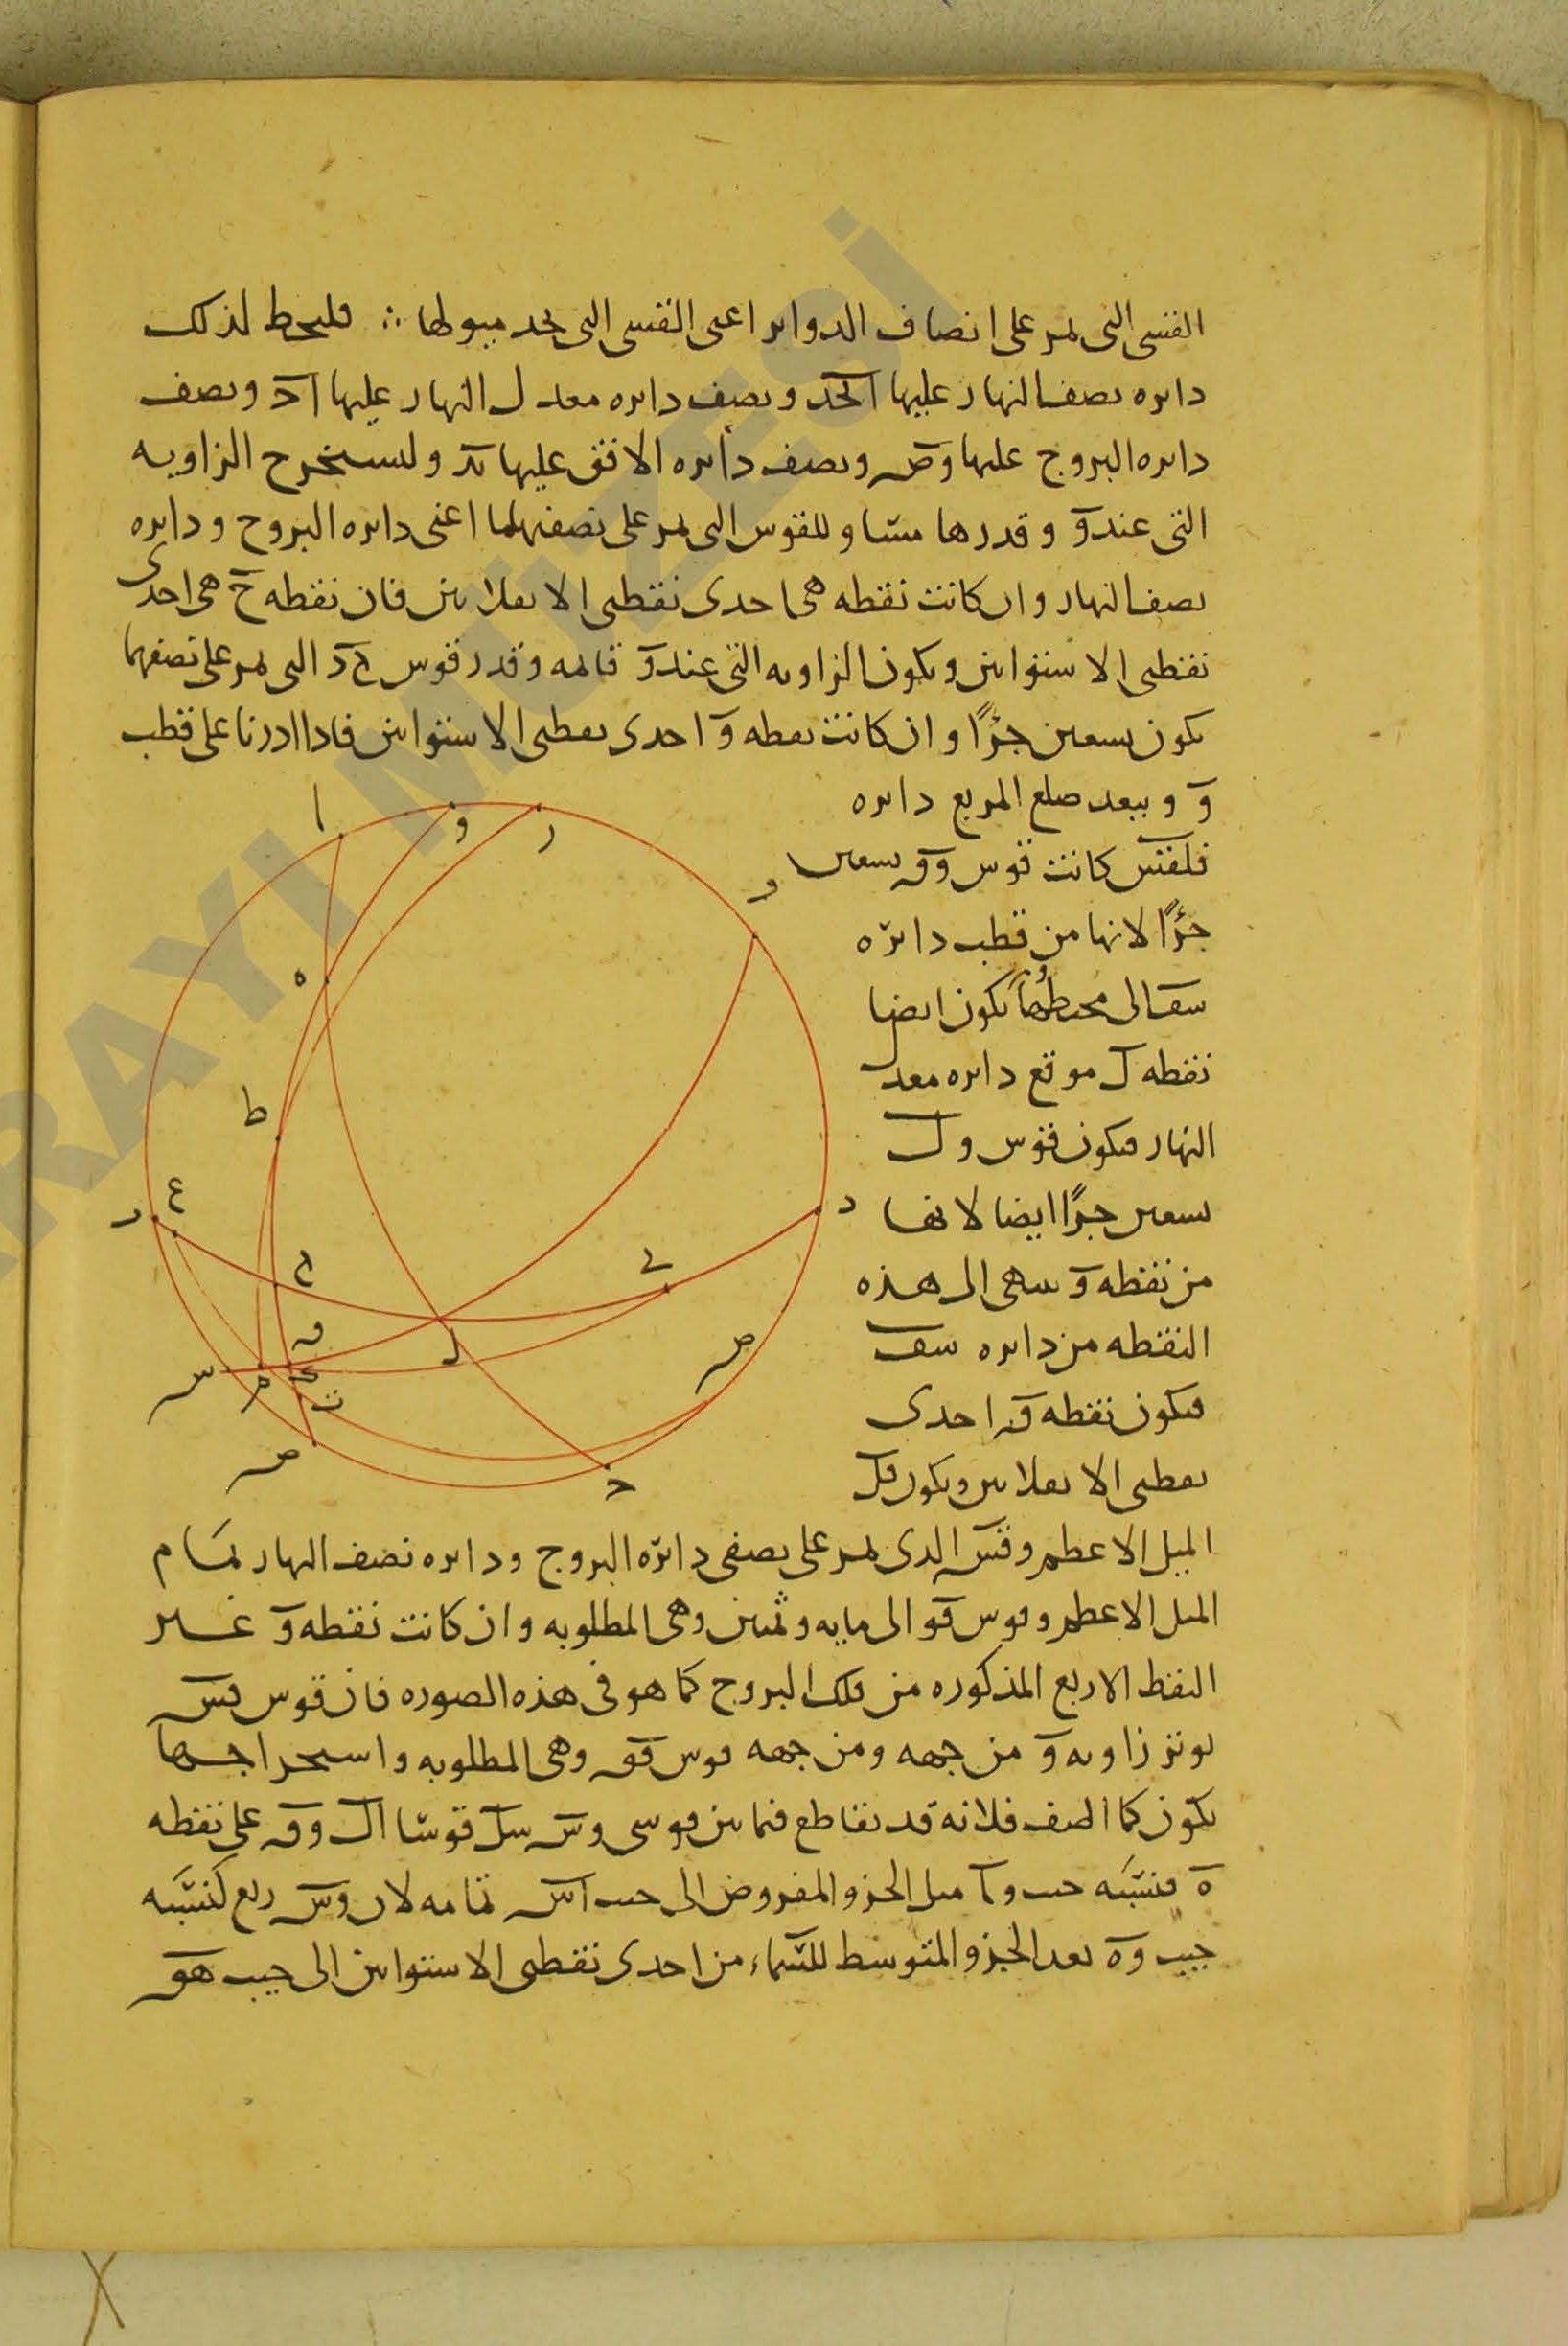 القسى التى تمر على انصاف الدواير اعنى القسى التى تحد ميولها ∴ فليحط لذلك
دايره نصف النهار عليها ابجد ونصف دايره معدل النهار عليها اح ونصف
دايره البروج عليها وص ونصف دايره الافق عليها ٮد ولنستخرج الزاويه
التى عند و وقدرها مساو للقوس التى تمر على نصفيهما اعنى دايره البروج ودايره
نصف النهار وان كانت نقطه هى احدى نقطتى الانقلابين فان نقطه ح هى احدى
نقطتى الاستوايين ويكون الزاويه التى عند و قايمه وقدر قوس د التى تمر على نصفهما
يكون تسعين جزًا وان كانت نقطه و احدى نقطتى الاستوايين فاذا ادرنا على قطب
و وببعد ضلع المربع دايره
كانت قوس وق تسعين
جزًا لانها من قطب دايره
سف الى محيطها يكون ايضا
نقطه ل موقع دايره معدل
النهار فيكون قوس ول
تسعين جزًا ايضا لانها
من نقطه و تنتهى الى هذه
النقطه من دايره سف
فيكون نقطه ق احدى
نقطتى الانقلابين ويكون قل
الميل الاعظم وقس الذى تمر على نصفى دايره البروج ودايره نصف النهار تمام
الميل الاعظم وقوس قو الى مايه وثمنين وهى المطلوبه وان كانت نقطه و غير
النقط الاربع المذكوره من فلك البروج كما هو فى هذه الصوره فان قوس قس
يوتر زاويه و من جهه ومن جهه قوس قف وهى المطلوبه واستخراجها
يكون كما اصف فلانه قد تقاطع فيما بين قوسى وس سل قوسا ال وق على نقطه
ه فنسبه جيب وا ميل الجزو المفروض الى جيب اس تمامه لان وس ربع كنسبه
جيب وه بعد الجزو المتوسط للسماء من احدى نقطتى الاستوايين الى جيب هق
ا
و
ر
و
ه
ط
ع
ح
د
ل
ق
م
س
ں
ص
ص
ح